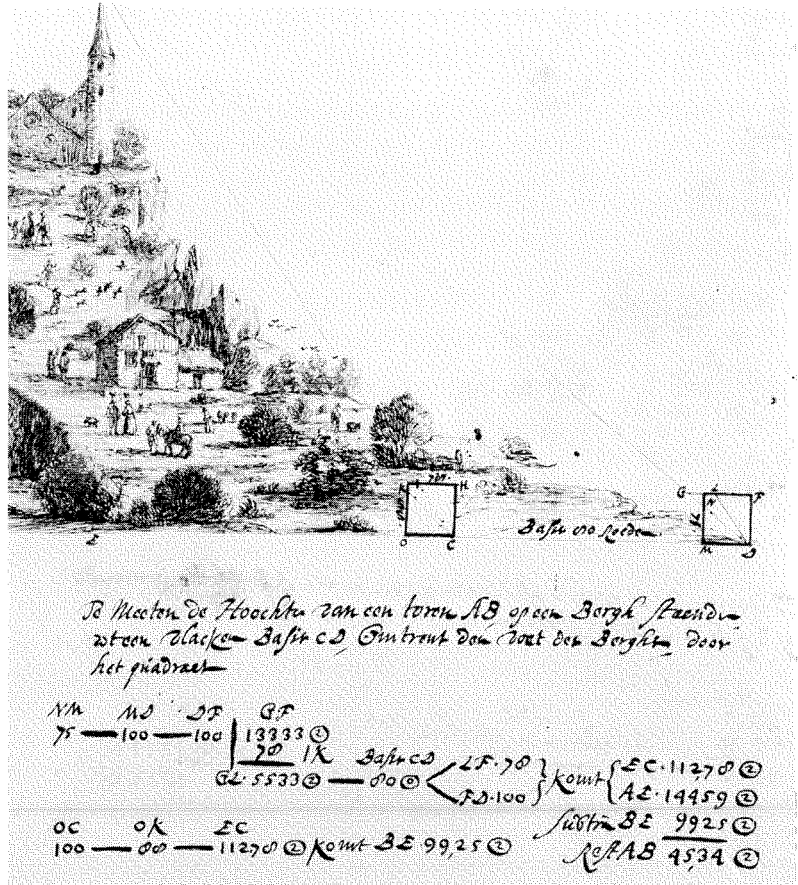 E
G L F
M D
H
O C
Basis 80 Roeden
Te Meeten de Hoochte van een toren AB op een Bergh staende
wt een vlacke Basis CD, Omtrent den voet des Berghs, door
het quadraet
NM MD DF GF
75 — 100 — 100 13333 ②
78 IK Basis CD
GL 5533 ② — 80 ⓪ LF·78 FD·100 komt EC·11278 ② AE·14459 ②
OC OK EC
100 — 88 — 11278 ② komt BE 99,25 ②
Subtra BE 9925 ②
Rest AB 4534 ②